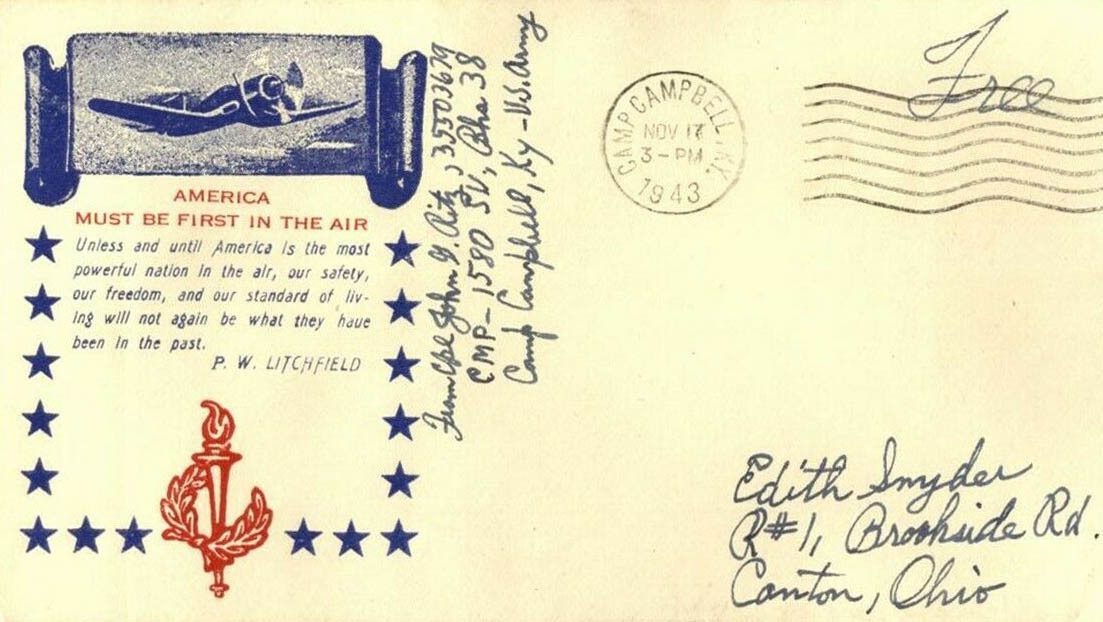 AMERICA
MUST BE FIRST IN THE AIR
Unless and until America is the most
powerful nation in the air, our safety,
our freedom, and our standard of liv-
ing will not again be what they have
been in the past.
P. W. LITCHFIELD
From Cpl John G. Ritz 35303679
CMP-1580 SU, Bks 38
Camp Campbell, Ky-U.S. Army
CAMP CAMPBELL, KY.
NOV 17
3-PM
1943
Free
Edith Snyder
R#1, Brookside Rd.
Canton, Ohio